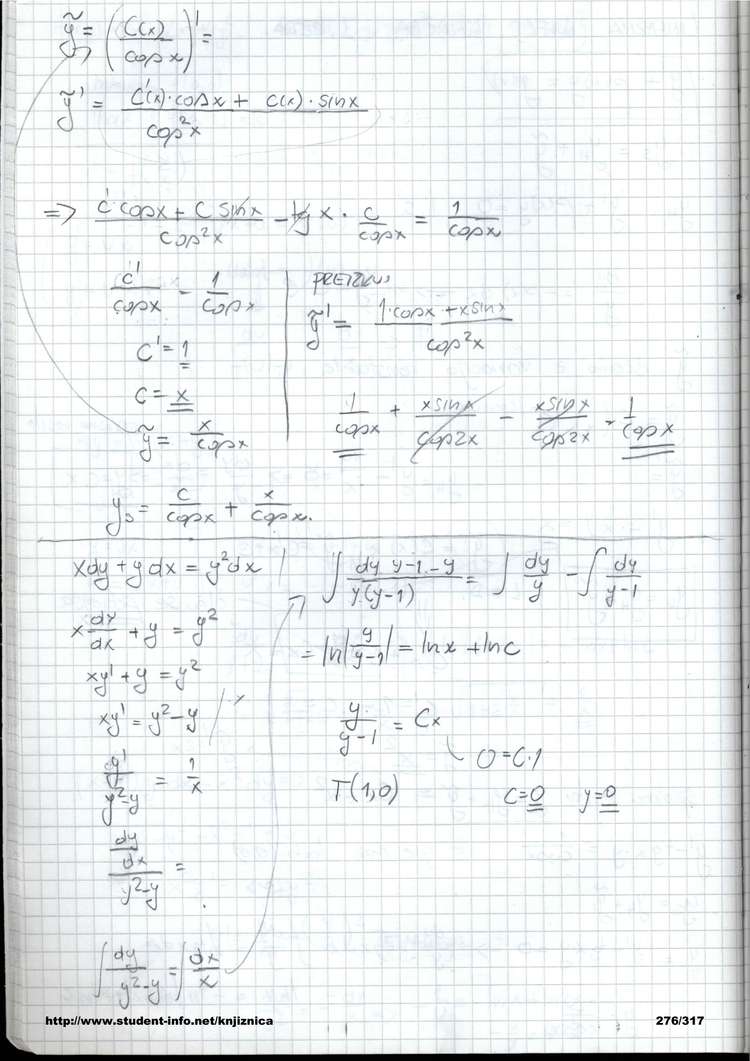 ỹ = (C(x)/cos x)' =
ỹ' = (C'(x)·cos x + C(x)·sin x)/cos²x
=> (C'·cos x + C sin x)/cos²x − tg x · C/cos x = 1/cos x
C'/cos x = 1/cos x
C' = 1
C = x
ỹ = x/cos x
PREIZKUS
ỹ' = (1·cos x + x sin x)/cos²x
1/cos x + x sin x/cos²x − x sin x/cos²x = 1/cos x
y_s = C/cos x + x/cos x.
x dy + y dx = y² dx /
x dy/dx + y = y²
xy' + y = y²
xy' = y² − y / : x
y'/(y² − y) = 1/x
(dy/dx)/(y² − y) =
∫ dy/(y² − y) = ∫ dx/x
∫ (dy y−1−y)/(y(y−1)) = ∫ dy/y − ∫ dy/(y−1)
= ln|y/(y−1)| = ln x + ln C
y/(y−1) = Cx
0 = C·1
T(1,0)
C = 0 y = 0
http://www.student-info.net/knjiznica
276/317